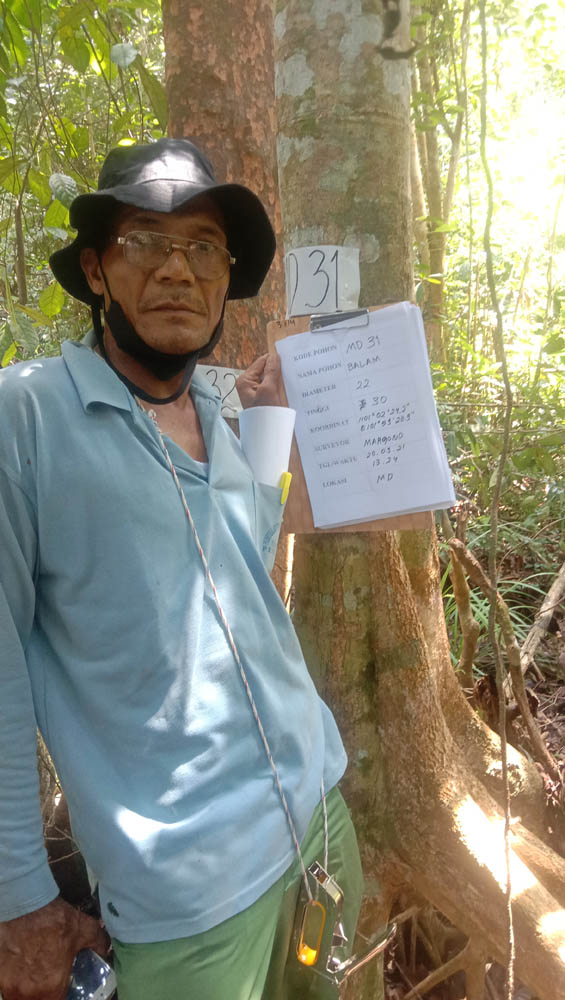 D 31
32
KODE POHON MD 31
NAMA POHON BALAM
DIAMETER 22
TINGGI 30
KOORDINAT
SURVEYOR MARGONO
TGL/WAKTU 20.03.21
13.24
LOKASI MD